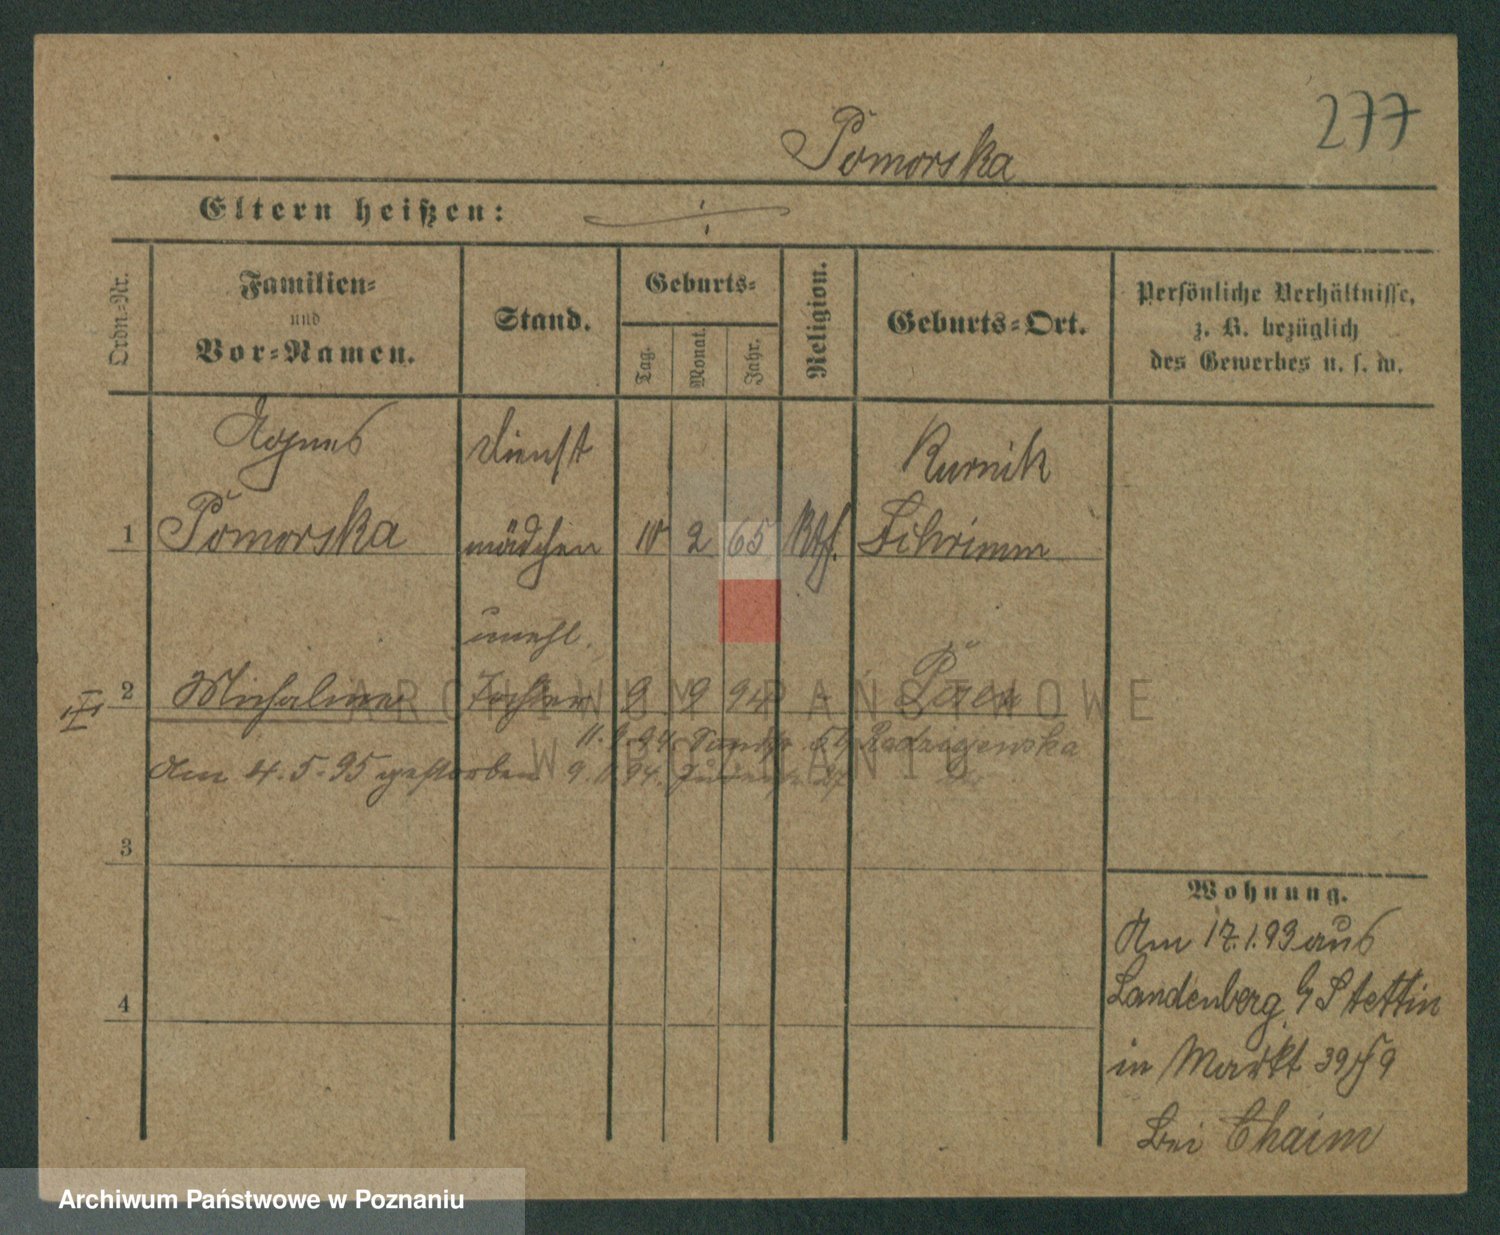 277
Pomorska
Eltern heißen:
Ordn.-Nr.
Familien-
und
Vor-Namen.
Stand.
Geburts-
Tag.
Monat.
Jahr.
Religion.
Geburts-Ort.
Persönliche Verhältnisse,
z. B. bezüglich
des Gewerbes u. s. w.
Agnes
Dienst
Kurnik
1 Pomorska mädchen 10 2 65 Kth. Schrimm
unehl.
2 Michaline Tochter 9 9 94 - Posen
III
11. 9. 94.
Am 4.5.95 gestorben 9. 94.
3
4
Wohnung.
Am 17.1.93 aus
Landenberg Stettin
in Markt 39
bei Chaim
ARCHIWUM PAŃSTWOWE
W POZNANIU
Archiwum Państwowe w Poznaniu